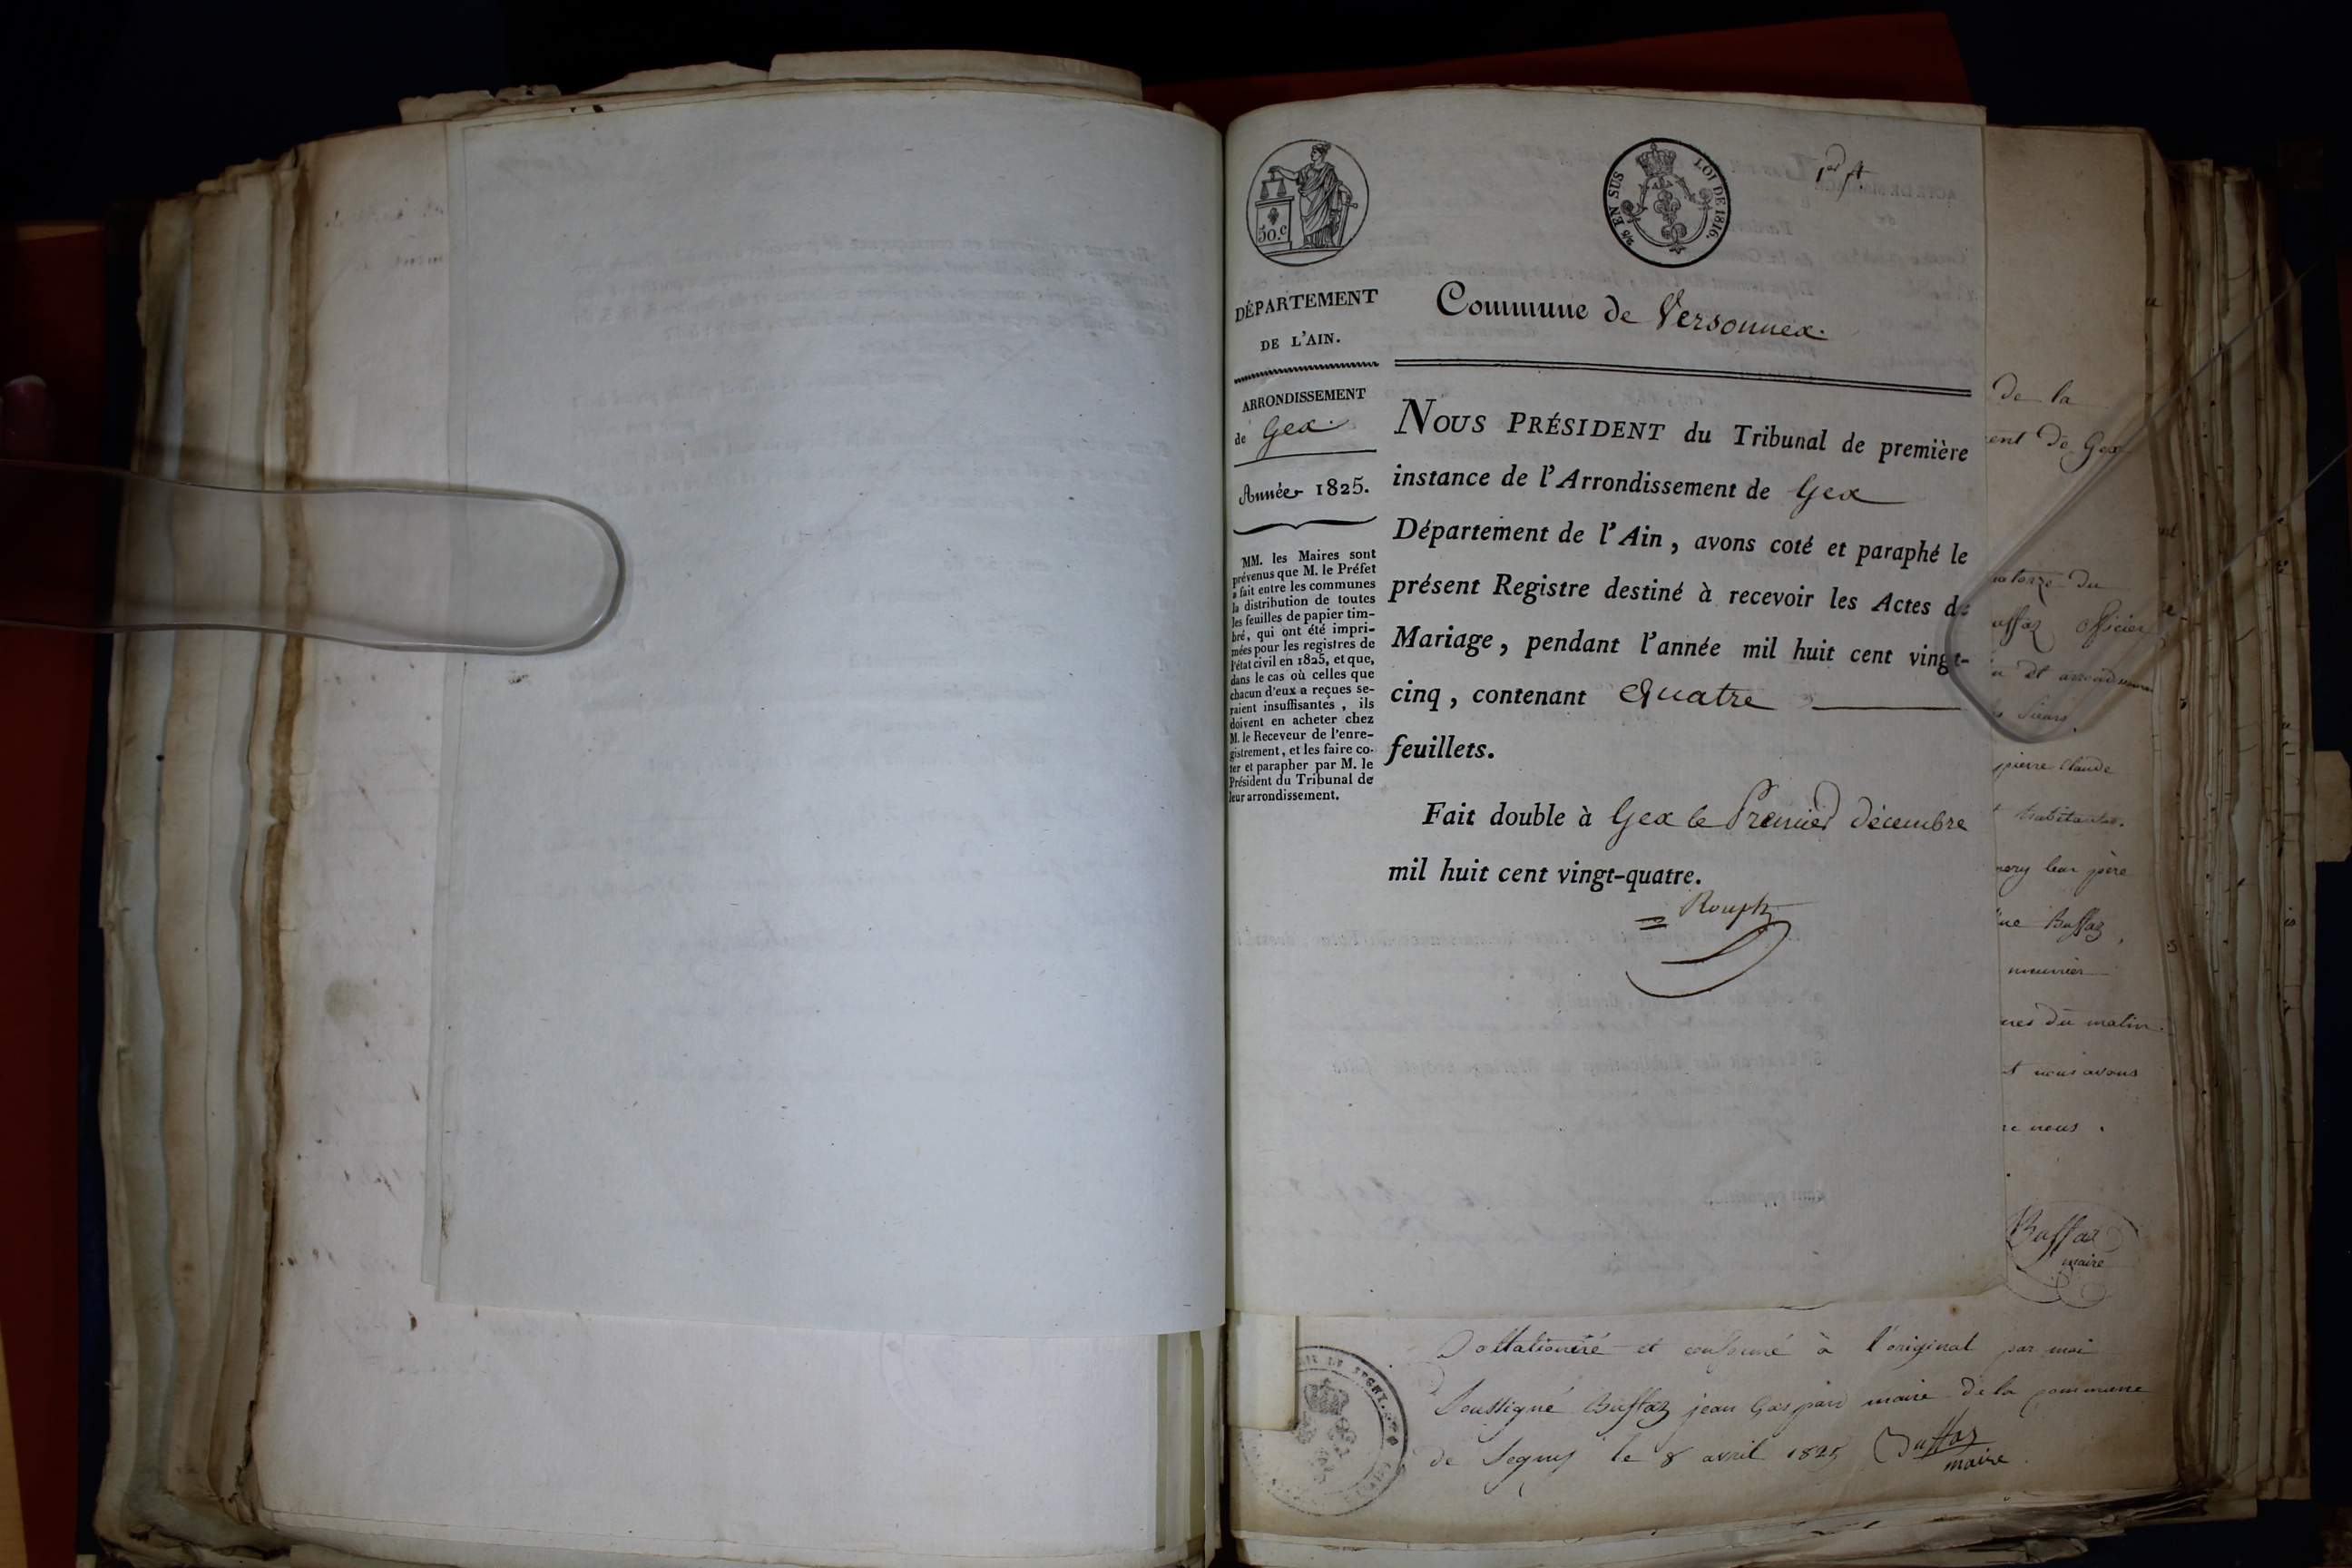 50.c
2/5 EN SUS
LOI DE 1816.
1er ft
DÉPARTEMENT
DE L'AIN.
ARRONDISSEMENT
de Gex.
Année 1825.
MM. les Maires sont
prévenus que M. le Préfet
a fait entre les communes
la distribution de toutes
les feuilles de papier tim-
bré, qui ont été impri-
mées pour les registres de
l'état civil en 1825, et que,
dans le cas où celles que
chacun d'eux a reçues se-
raient insuffisantes, ils
doivent en acheter chez
M. le Receveur de l'enre-
gistrement, et les faire co-
ter et parapher par M. le
Président du Tribunal de
leur arrondissement.
Commune de Versonnex.
NOUS PRÉSIDENT du Tribunal de première
instance de l'Arrondissement de Gex
Département de l'Ain, avons coté et paraphé le
présent Registre destiné à recevoir les Actes de
Mariage, pendant l'année mil huit cent vingt-
cinq, contenant Quatre
feuillets.
Fait double à Gex le Premier décembre
mil huit cent vingt-quatre.
Rouph
de la
ent de Gex
atorze du
uffaz officier
pierre Claude
habitants.
mery leur père
ne Buffaz,
meunier
res du matin
t nous avons
re nous.
Buffaz
maire
et conforme à l'original par moi
Soussigné Buffaz jean Gaspard maire de la commune
de Segny le 8 avril 1825 Buffaz
maire